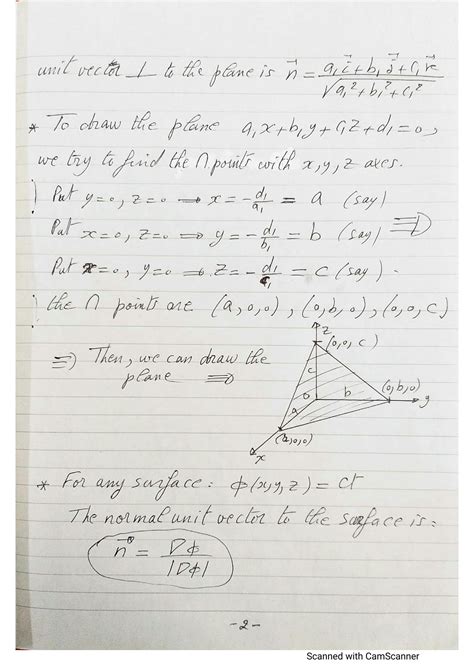 unit vector ⊥ to the plane is n⃗ = (a₁ i⃗ + b₁ j⃗ + c₁ k⃗) / √(a₁² + b₁² + c₁²)
* To draw the plane a₁x + b₁y + c₁z + d₁ = 0,
we try to find the ∩ points with x, y, z axes.
Put y = 0, z = 0 ⟹ x = -d₁/a₁ = a (say)
Put x = 0, z = 0 ⟹ y = -d₁/b₁ = b (say) ⟹
Put x = 0, y = 0 ⟹ z = -d₁/c₁ = c (say).
the ∩ points are (a,0,0), (0,b,0), (0,0,c)
z
(0,0,c)
⟹) Then, we can draw the
plane ⟹
c
0 b (0,b,0) y
a
(a,0,0)
x
* For any surface: ϕ(x,y,z) = ct
The normal unit vector to the surface is:
n⃗ = ∇ϕ / |∇ϕ|
-2-
Scanned with CamScanner